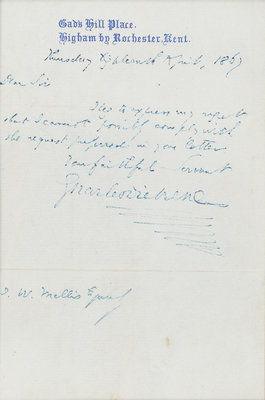 Gad's Hill Place.
Higham by Rochester, Kent.
Thursday Eighteenth April, 1867
Dear Sir
I beg to express my regret
that I cannot possibly comply with
the request preferred in your letter
Your faithful Servant
Charles Dickens
W. Mellis Esquire